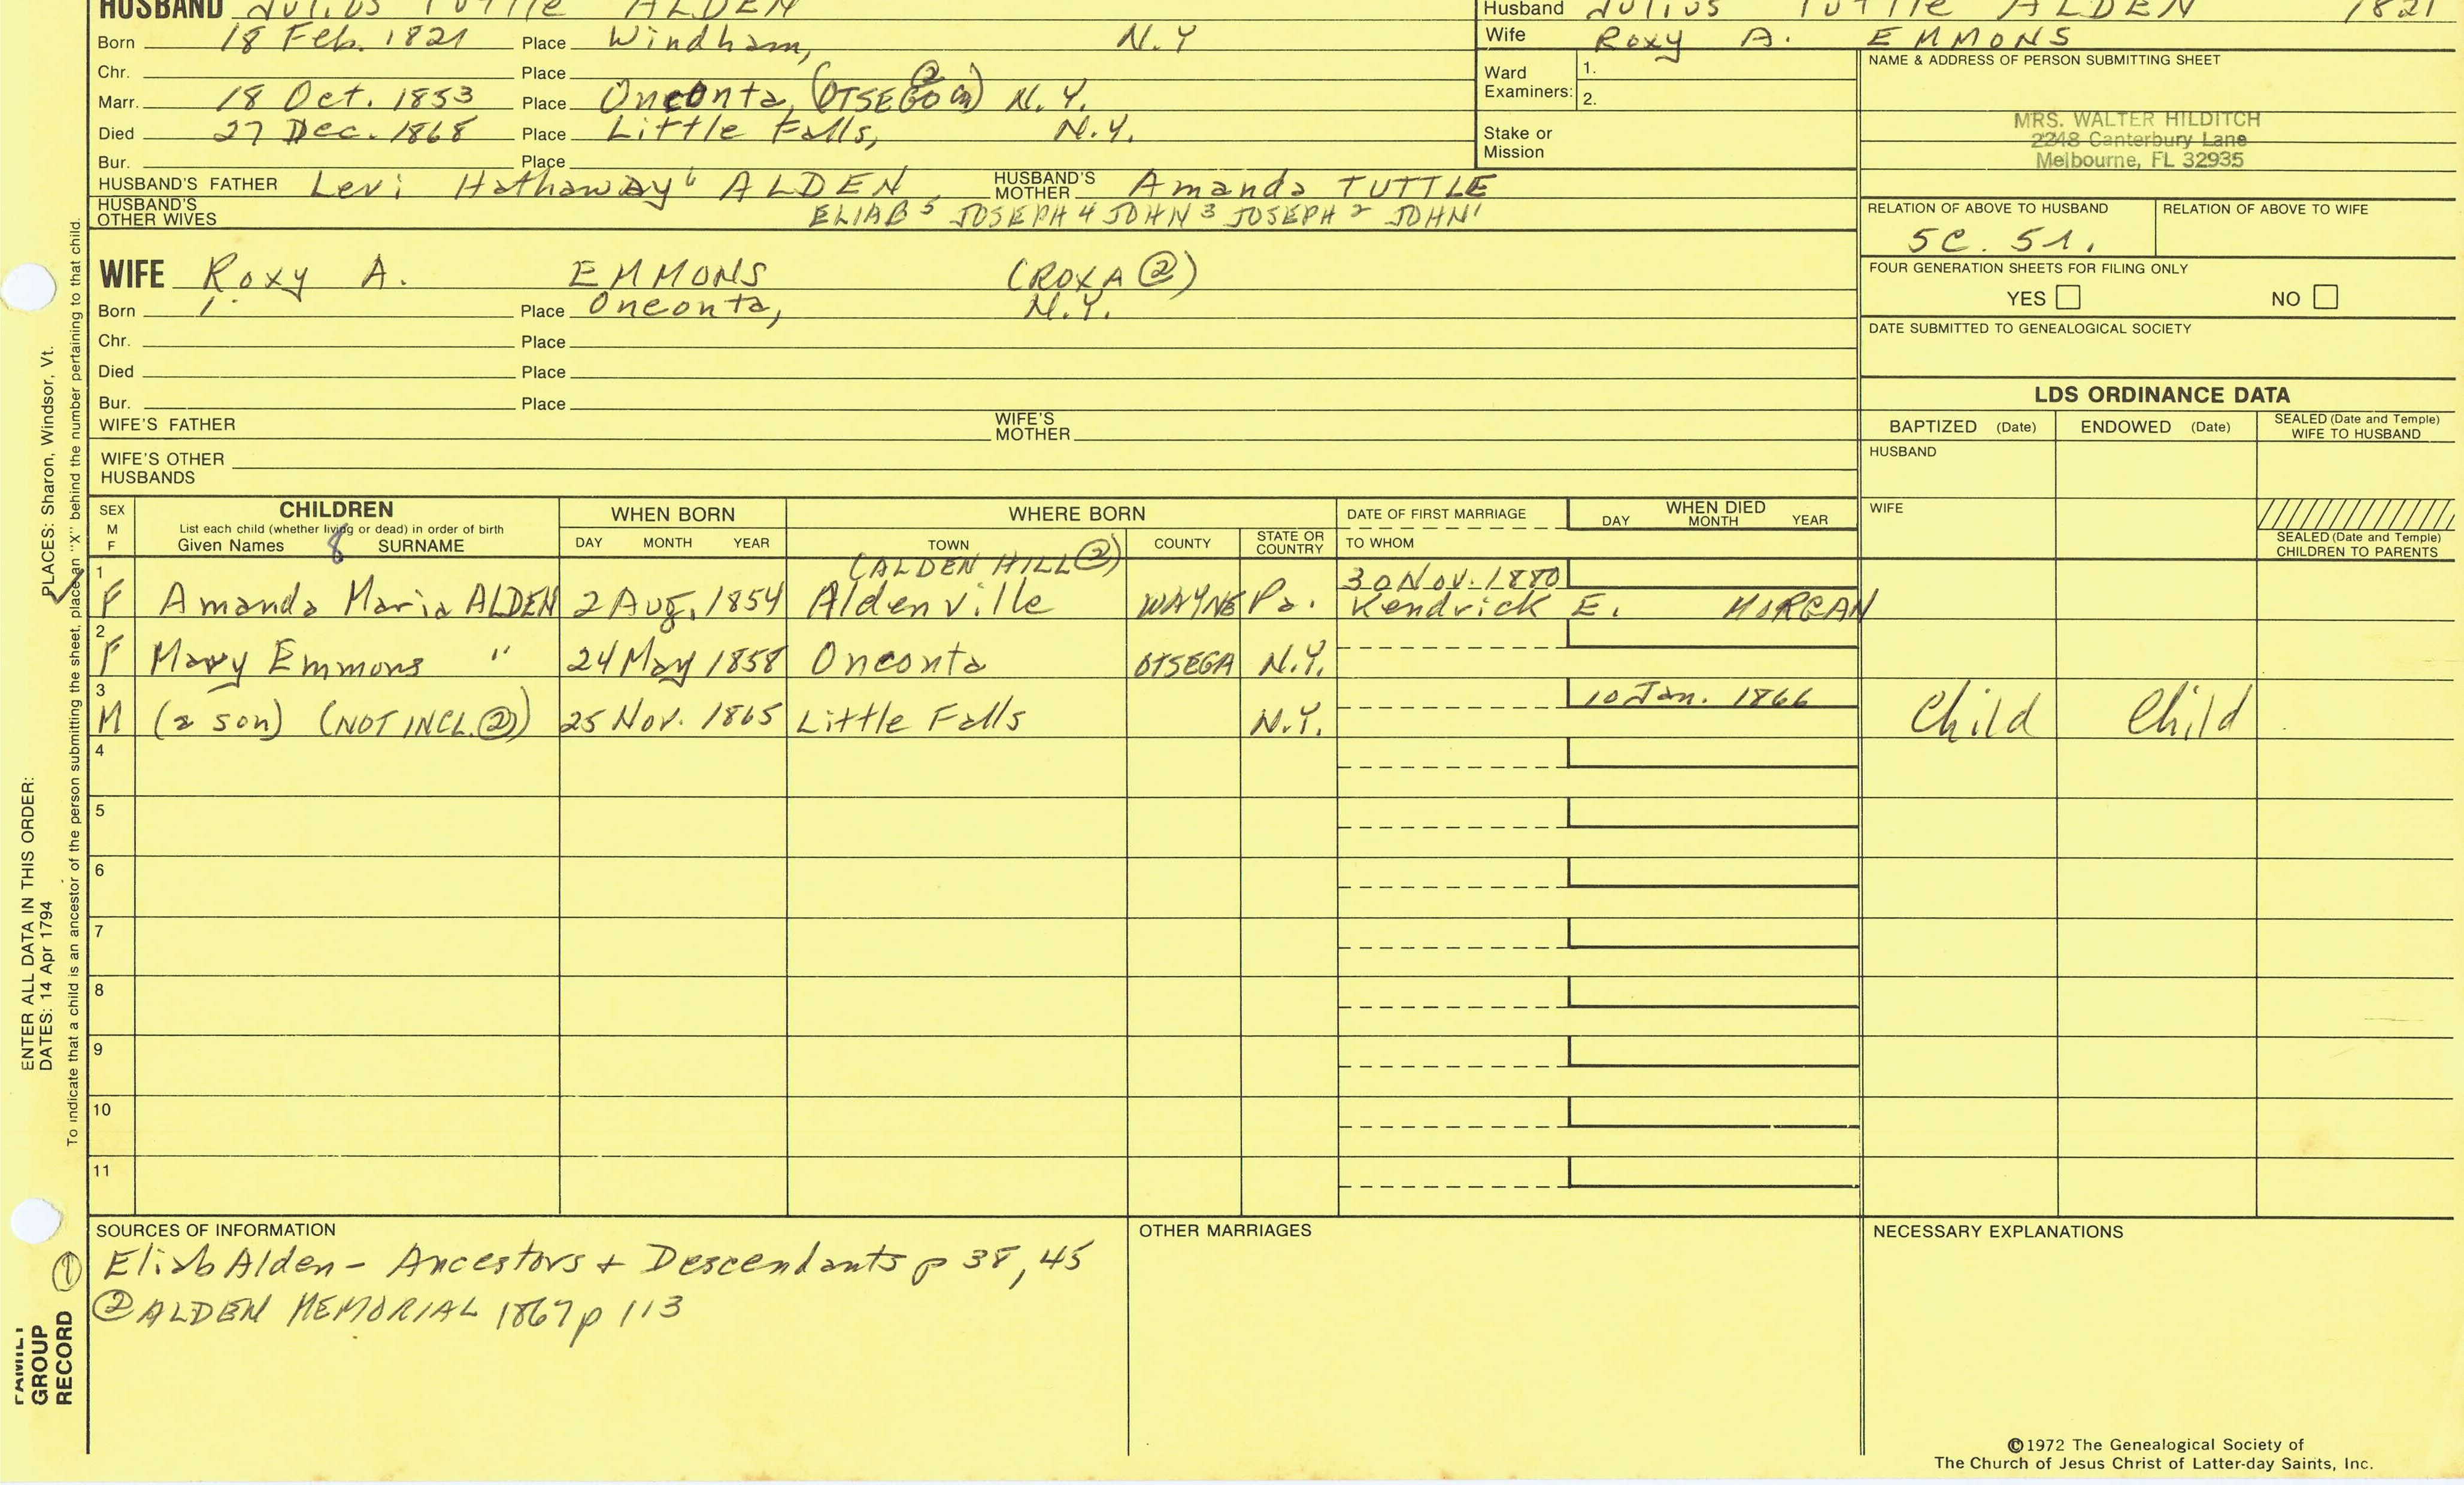 HUSBAND Julius Tuttle ALDEN
Born 18 Feb. 1821 Place Windham, N.Y
Chr. Place
Marr. 18 Oct. 1853 Place Oneonta, (OTSEGO Co ②) N.Y.
Died 27 Dec. 1868 Place Little Falls, N.Y.
Bur. Place
HUSBAND'S FATHER Levi Hathaway 6 ALDEN HUSBAND'S MOTHER Amanda TUTTLE
HUSBAND'S OTHER WIVES ELIAB 5 JOSEPH 4 JOHN 3 JOSEPH 2 JOHN 1
Husband Julius Tuttle ALDEN 1821
Wife Roxy A. EMMONS
Ward Examiners: 1.
2.
Stake or Mission
NAME & ADDRESS OF PERSON SUBMITTING SHEET
MRS. WALTER HILDITCH
2248 Canterbury Lane
Melbourne, FL 32935
RELATION OF ABOVE TO HUSBAND RELATION OF ABOVE TO WIFE
5C. 5r.
WIFE Roxy A. EMMONS (ROXA ②)
Born Place Oneonta, N.Y.
Chr. Place
Died Place
Bur. Place
WIFE'S FATHER WIFE'S MOTHER
WIFE'S OTHER HUSBANDS
FOUR GENERATION SHEETS FOR FILING ONLY
YES NO
DATE SUBMITTED TO GENEALOGICAL SOCIETY
LDS ORDINANCE DATA
BAPTIZED (Date) ENDOWED (Date) SEALED (Date and Temple) WIFE TO HUSBAND
HUSBAND
WIFE
SEALED (Date and Temple) CHILDREN TO PARENTS
SEX M F CHILDREN WHEN BORN WHERE BORN DATE OF FIRST MARRIAGE WHEN DIED
List each child (whether living or dead) in order of birth DAY MONTH YEAR
Given Names 8 SURNAME DAY MONTH YEAR TOWN COUNTY STATE OR COUNTRY TO WHOM
(ALDEN HILL ②) 30 Nov. 1880
1 F Amanda Maria ALDEN 2 Aug. 1854 Aldenville WAYNE Pa. Kendrick E. MORGAN
2 F Mary Emmons " 24 May 1858 Oneonta OTSEGA N.Y.
3 M (a son) (NOT INCL. ②) 25 Nov. 1865 Little Falls N.Y. 10 Jan. 1866 Child Child
4
5
6
7
8
9
10
11
SOURCES OF INFORMATION OTHER MARRIAGES NECESSARY EXPLANATIONS
① Eliab Alden - Ancestors + Descendants p 38, 45
② ALDEN MEMORIAL 1867 p 113
©1972 The Genealogical Society of
The Church of Jesus Christ of Latter-day Saints, Inc.
ENTER ALL DATA IN THIS ORDER:
DATES: 14 Apr 1794 PLACES: Sharon, Windsor, Vt.
To indicate that a child is an ancestor of the person submitting the sheet, place an "X" behind the number pertaining to that child.
FAMILY
GROUP
RECORD